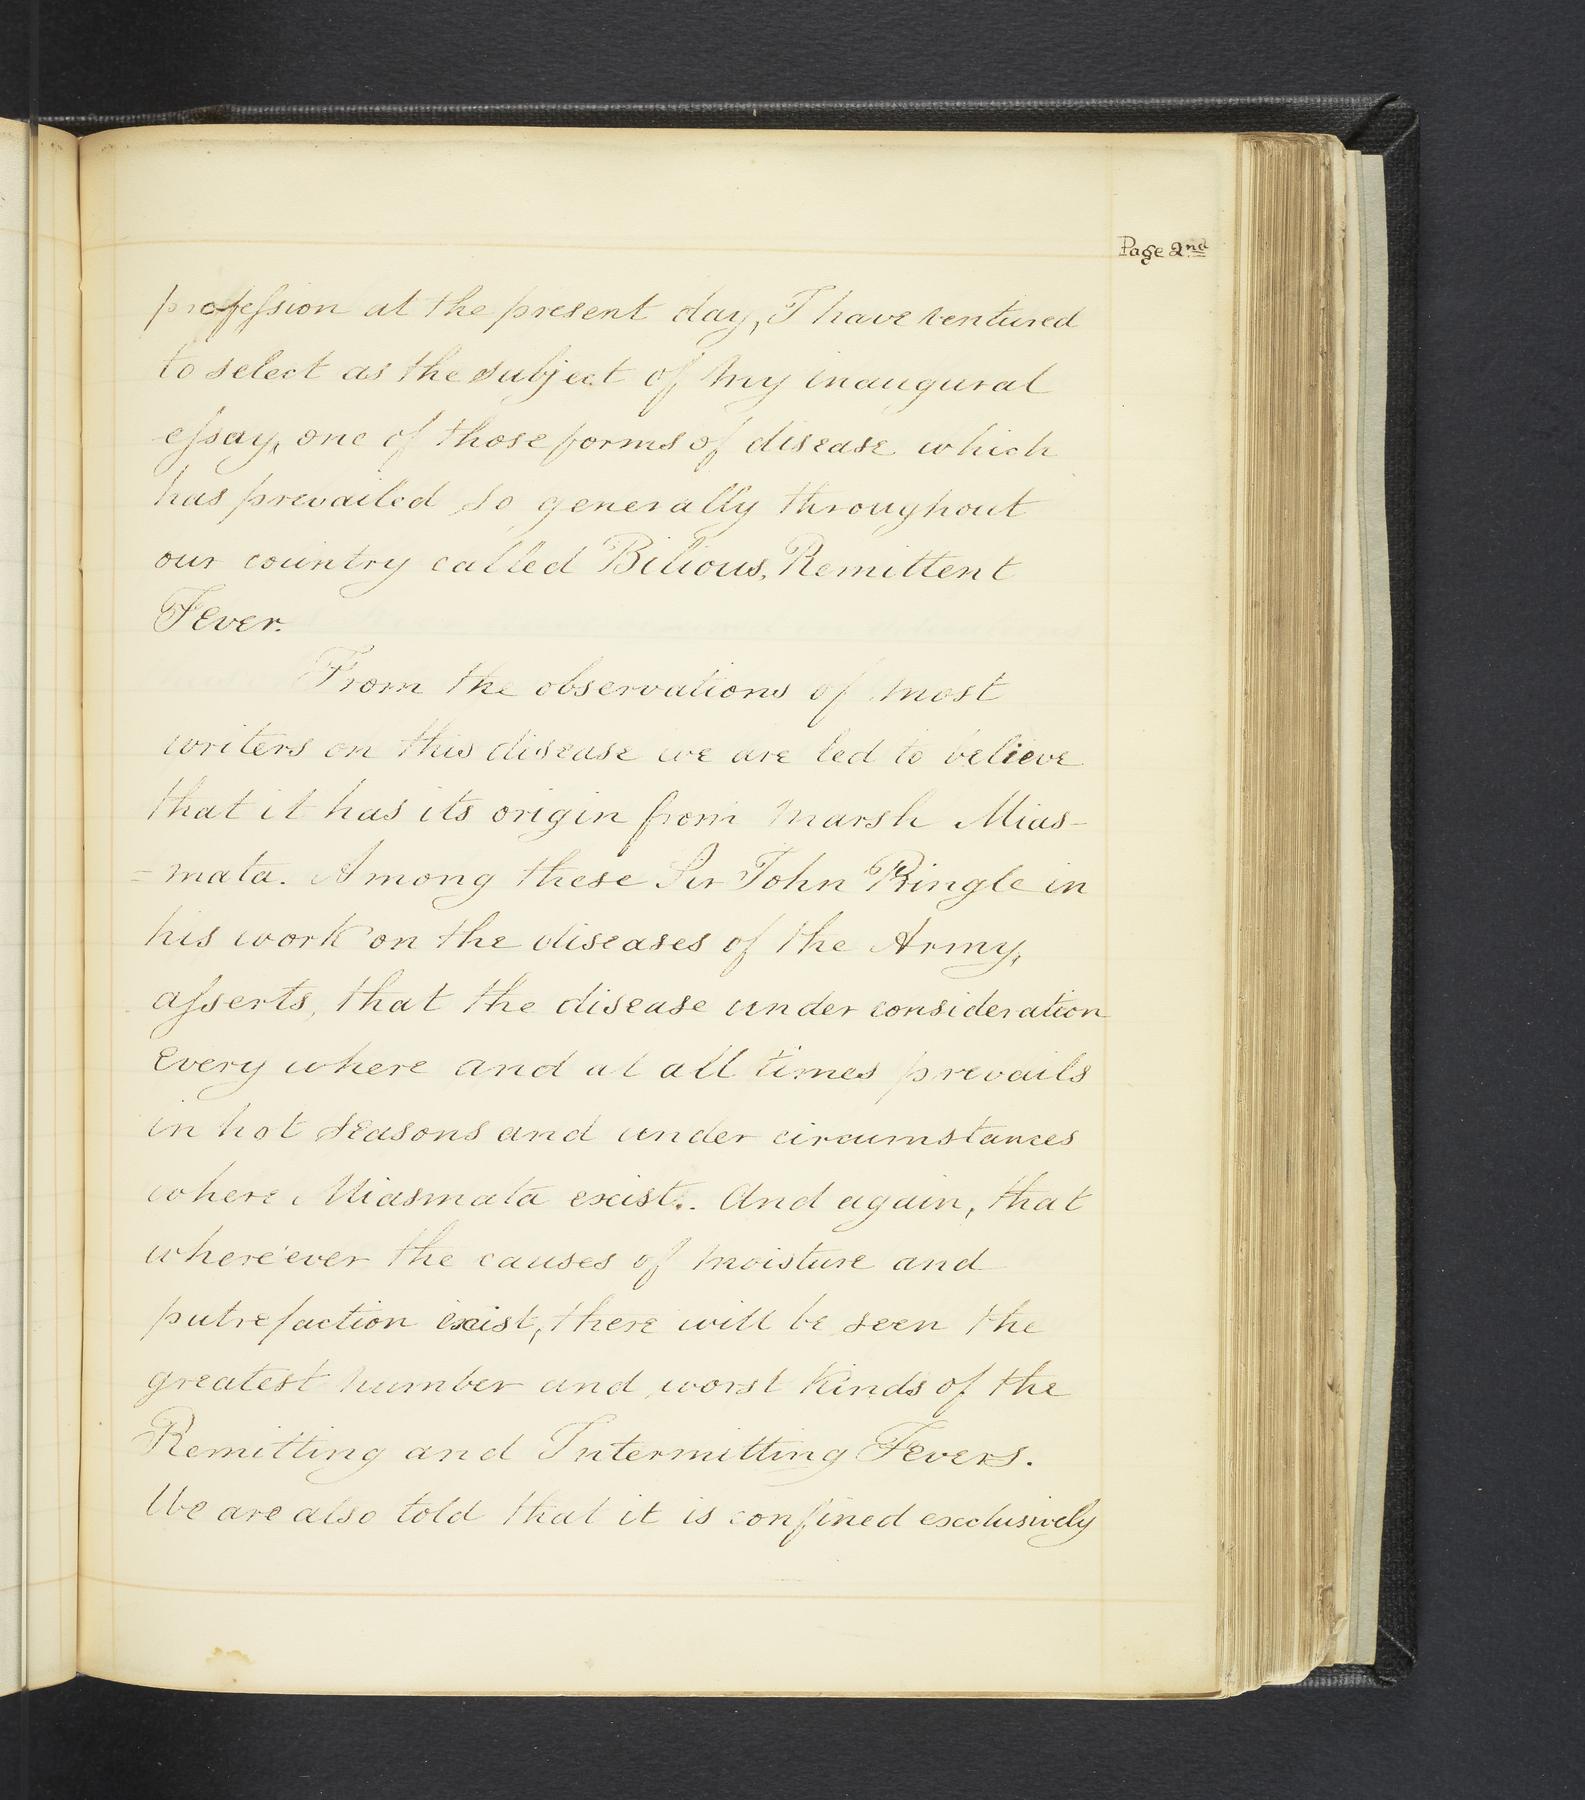 Page 2nd
profession at the present day, I have ventured
to select as the subject of my inaugural
essay, one of those forms of disease which
has prevailed so generally throughout
our country called Bilious, Remittent
Fever.
From the observations of most
writers on this disease we are led to believe
that it has its origin from marsh Mias-
=mata. Among these Sir John Pringle in
his work on the diseases of the Army,
asserts, that the disease under consideration
every where and at all times prevails
in hot seasons and under circumstances
where Miasmata exist.. And again, that
where'ever the causes of moisture and
putrefaction exist, there will be seen the
greatest number and worst kinds of the
Remitting and Intermitting Fevers.
We are also told that it is confined exclusively